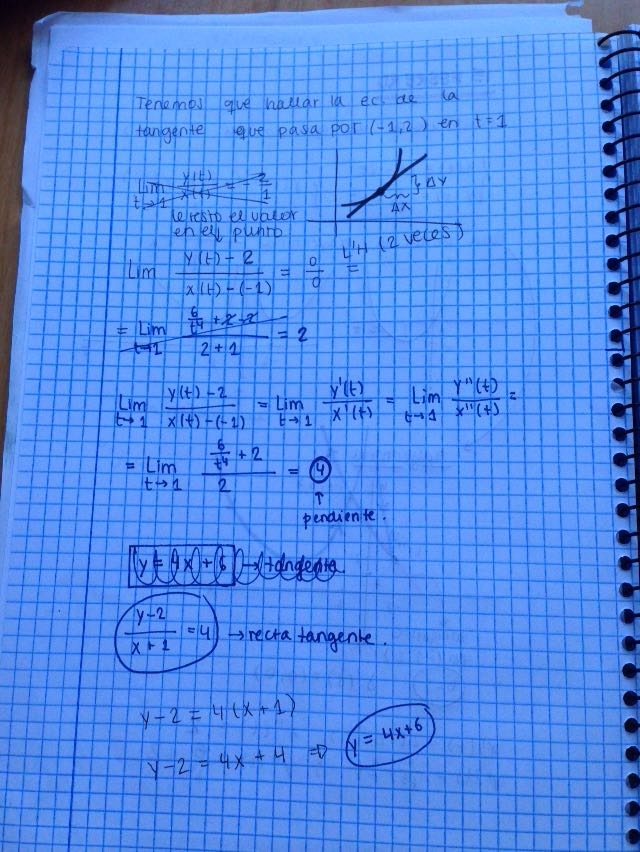 Tenemos que hallar la ec. de la
tangente que pasa por (-1,2) en t=1
Lim t→1 y(t)/x(t) = -2/1
le resto el valor
en el punto
ΔY
ΔX
Lim (y(t)-2)/(x(t)-(-1)) = 0/0 = L'H (2 veces)
= Lim t→1 (6/t⁴ + 2 - 2)/(2+1) = 2
Lim t→1 (y(t)-2)/(x(t)-(-1)) = Lim t→1 y'(t)/x'(t) = Lim t→1 y''(t)/x''(t) =
= Lim t→1 (6/t⁴ + 2)/2 = 4
↑
pendiente.
y = 4x + 6 → tangente
(y-2)/(x+1) = 4 → recta tangente.
y-2 = 4(x+1)
y-2 = 4x + 4 ⇒ y = 4x+6